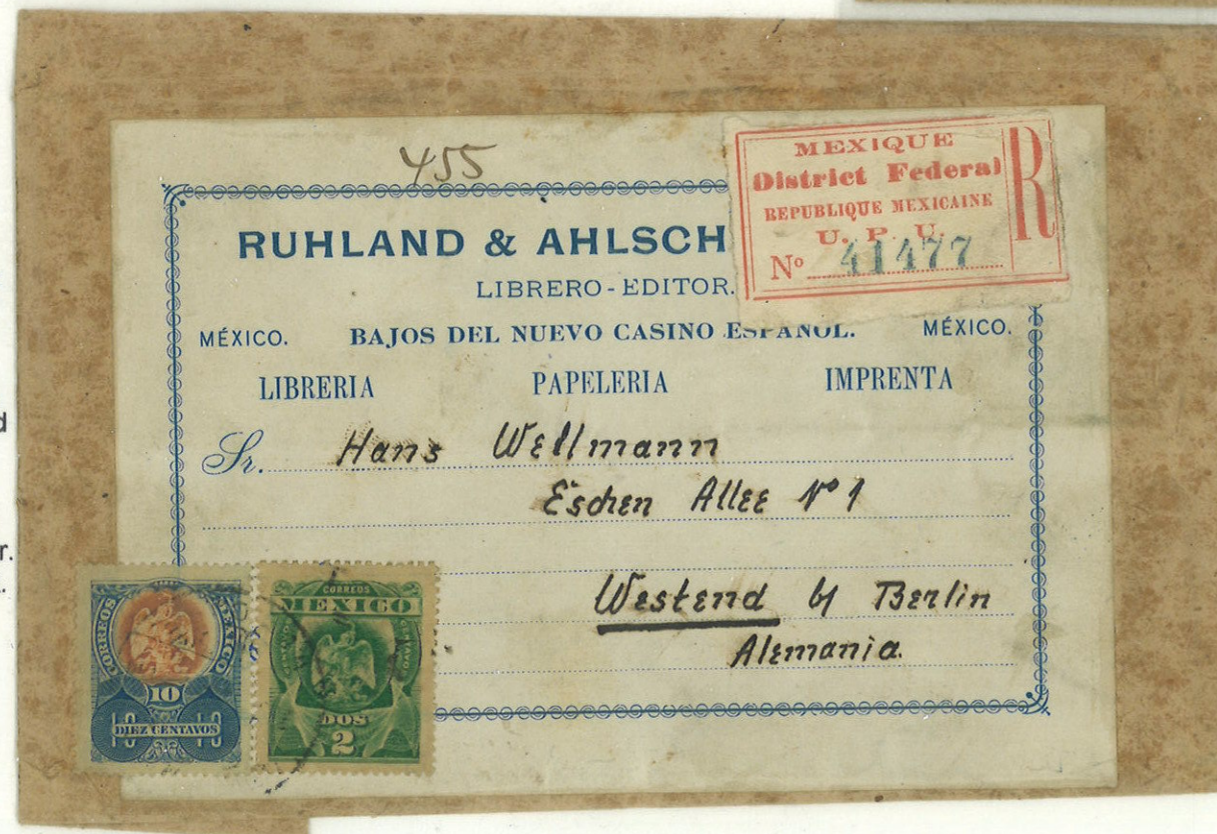 455
MEXIQUE
District Federal
REPUBLIQUE MEXICAINE
U. P. U.
Nº 41477
R
RUHLAND & AHLSCH
LIBRERO-EDITOR.
MÉXICO. BAJOS DEL NUEVO CASINO ESPAÑOL. MÉXICO.
LIBRERIA PAPELERIA IMPRENTA
Sr. Hans Wellmann
Eschen Allee Nº 1
Westend b/ Berlin
Alemania.
CORREOS MEXICO
10
10 DIEZ CENTAVOS 10
CORREOS
MEXICO
DOS
2
d
r.